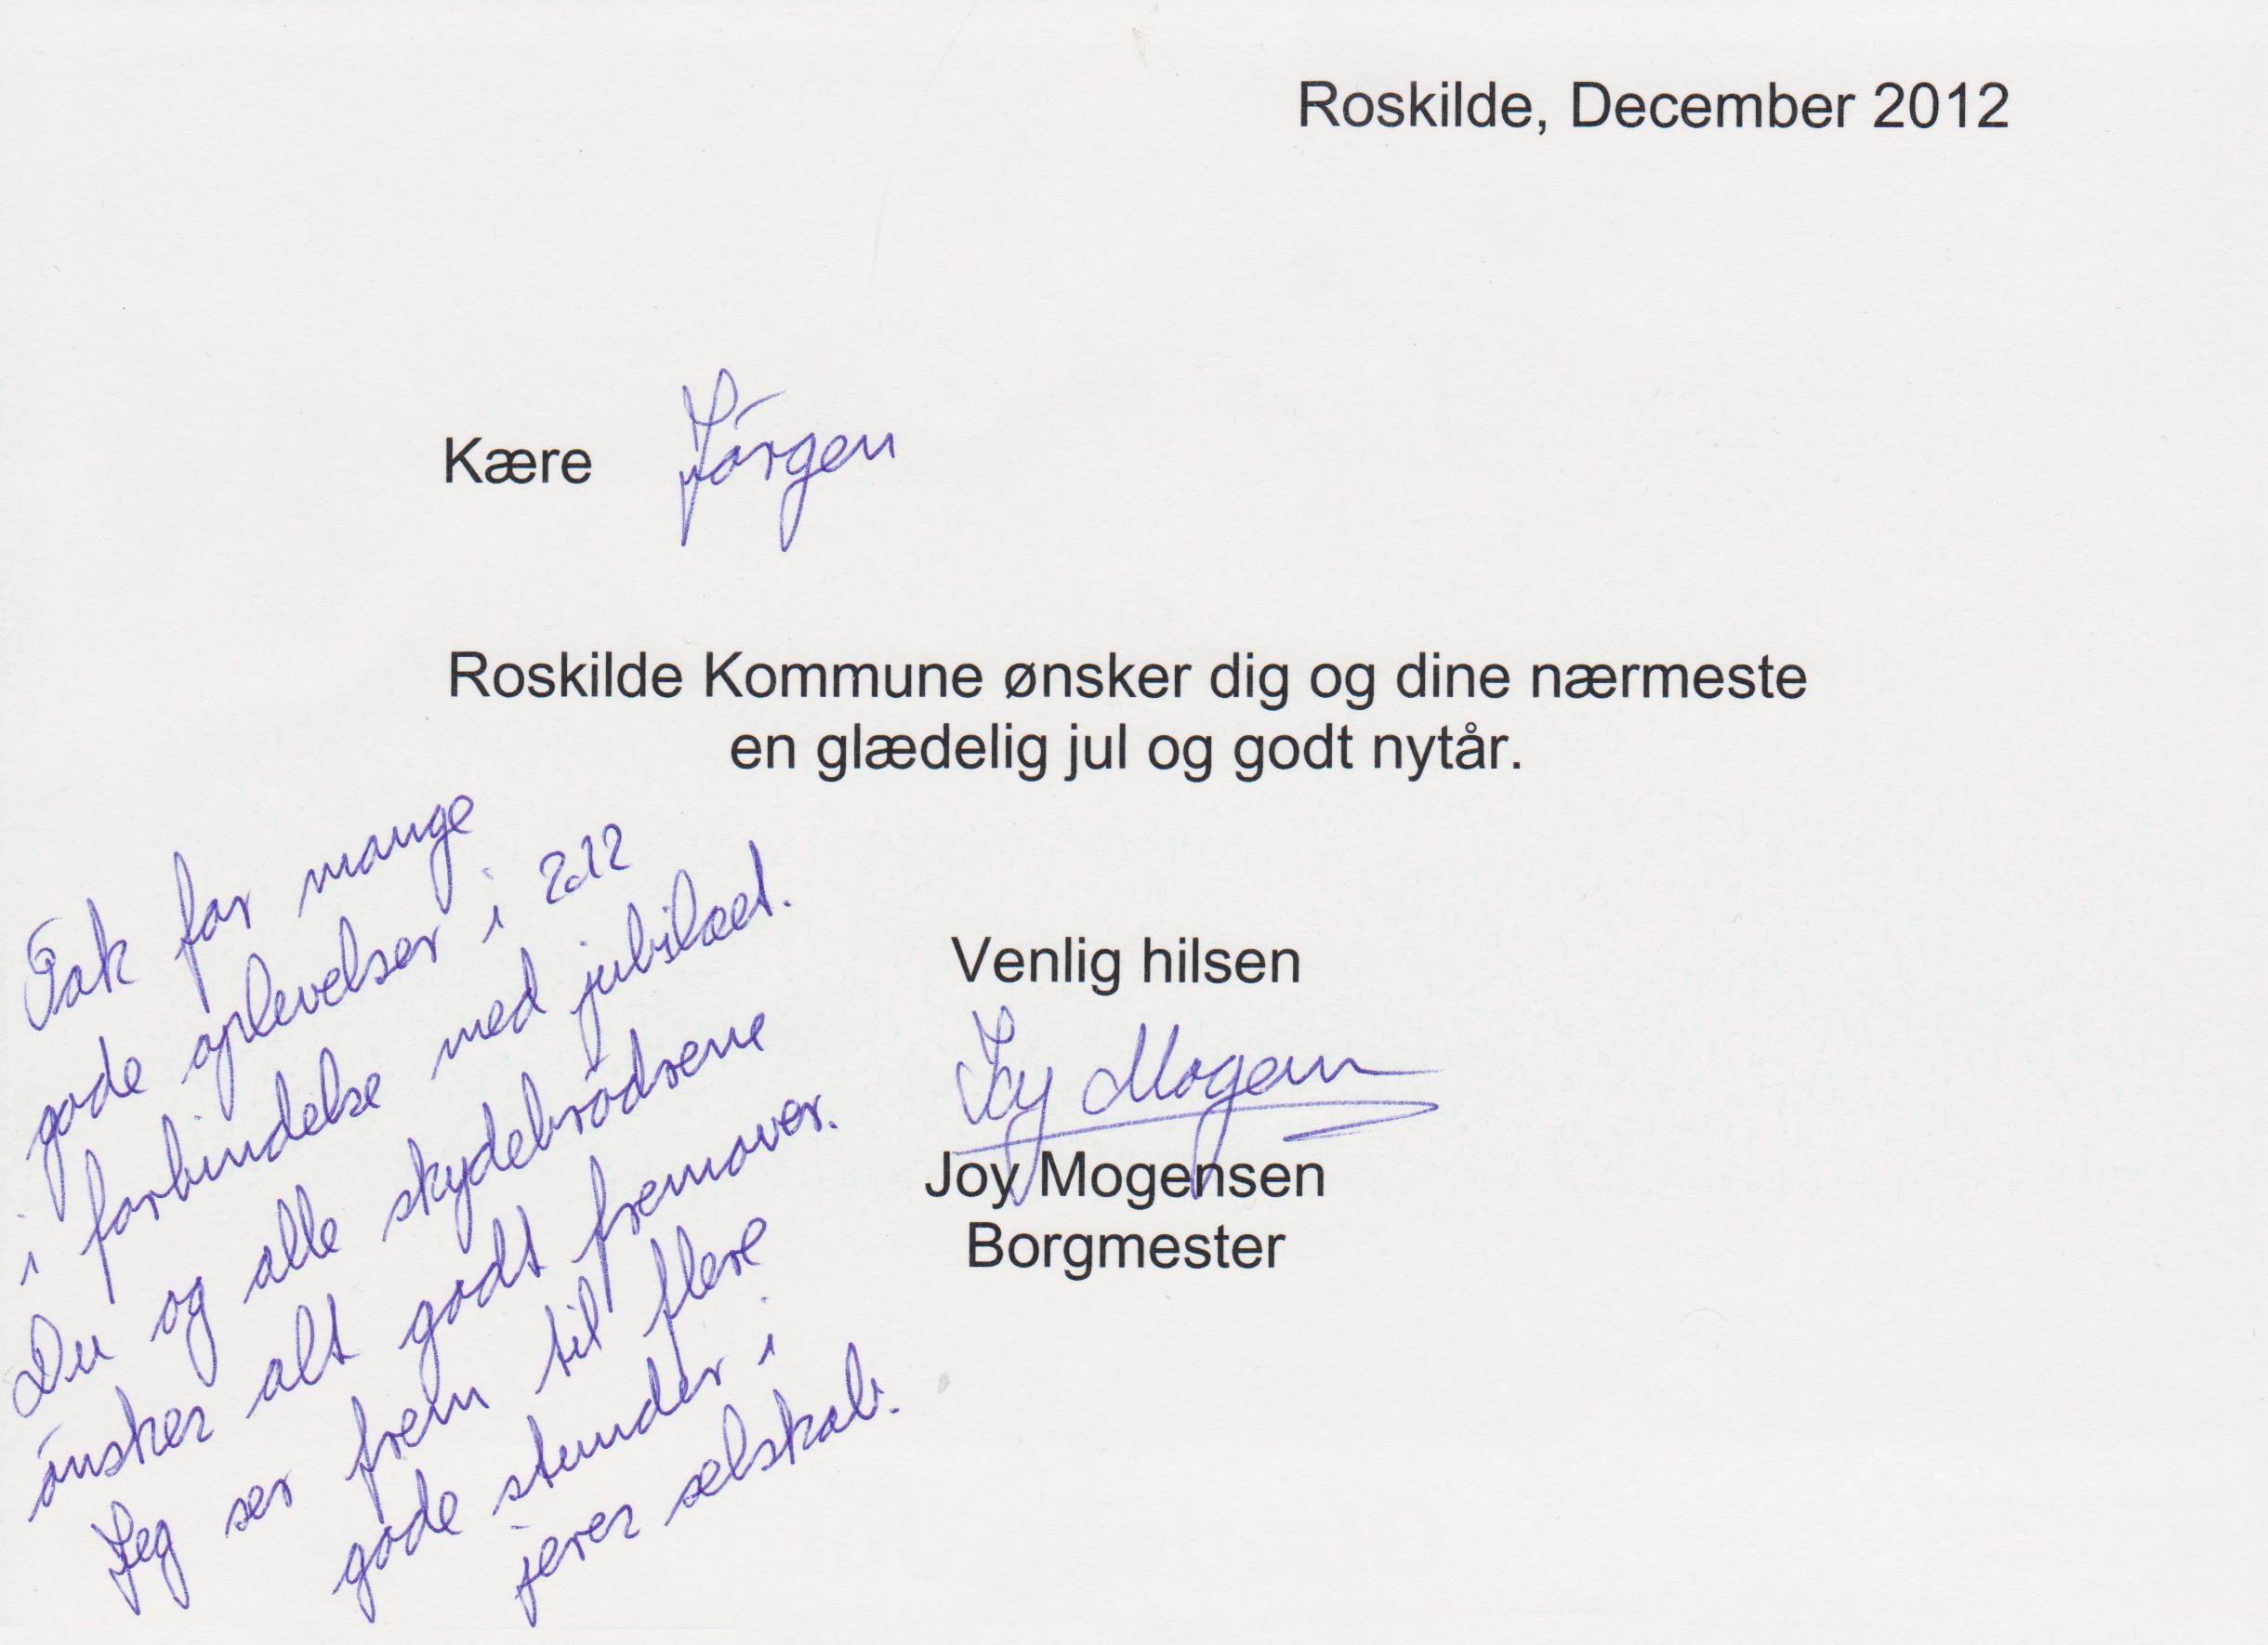 Roskilde, December 2012
Kære Jörgen
Roskilde Kommune ønsker dig og dine nærmeste
en glædelig jul og godt nytår.
Venlig hilsen
Joy Mogensen
Joy Mogensen
Borgmester
Tak for mange
gode oplevelser i 2012
i forbindelse med jubilæet.
Du og alle skydebrødrene
ønskes alt godt fremover.
Jeg ser frem til flere
gode stunder i
jeres selskab.